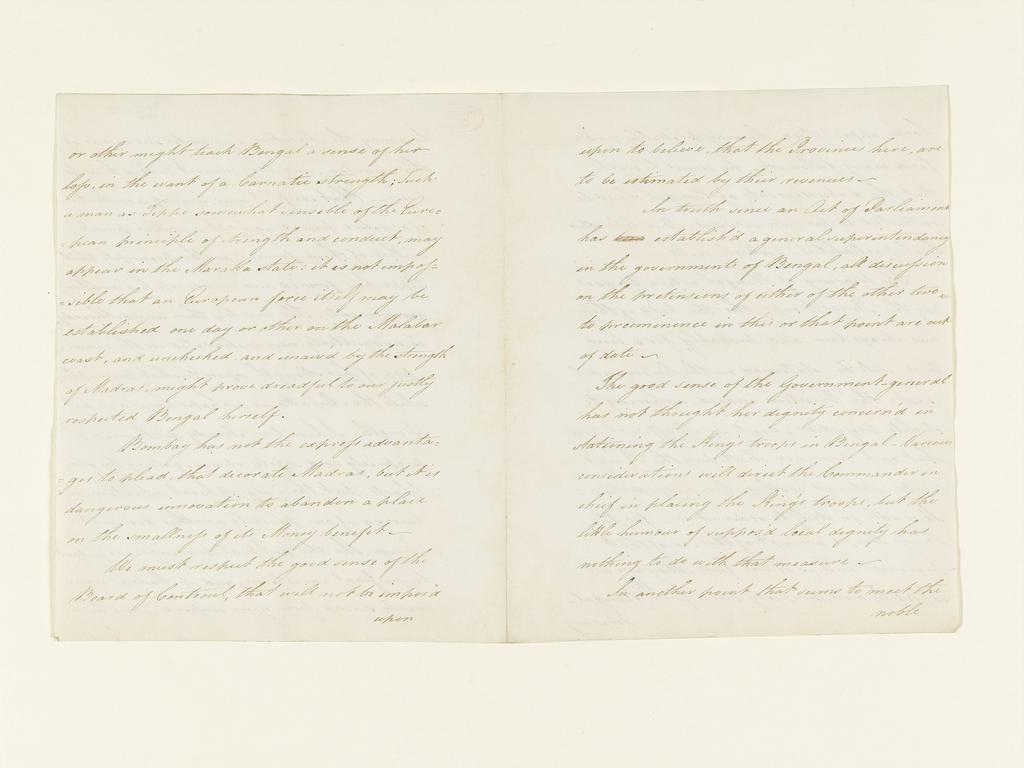 or other might teach Bengal a sense of her
loss, in the want of a Carnatic strength; Such
a man as Tippo somewhat sensible of the Euro=
=pean principle of strength and conduct, may
appear in the Maratta state: it is not impos=
=sible that an European force itself may be
established one day or other on the Malabar
coast, and unchecked and unaw'd by the strength
of Madras, might prove dreadful to our justly
respected Bengal herself.
Bombay has not the express advanta=
=ges to plead, that decorate Madras, but it is
dangerous innovation to abandon a place
on the smallness of its Money benefit.
We must respect the good sense of the
Board of Controul, that will not be impos'd
upon
upon to believe, that the Provinces here, are
to be estimated by their revenues
In truth since an Act of Parliament
has establish'd a general superintendancy
in the governments of Bengal, all discussion
on the pretensions of either of the other two
to preeminence in this or that point are out
of date
The good sense of the Government-general
has not thought her dignity concern'd in
stationing the King's troops in Bengal. Various
considerations will direct the Commander in
chief in placing the King's troops, but the
little humour of suppos'd local dignity has
nothing to do with that measure
In another point that seems to meet the
noble